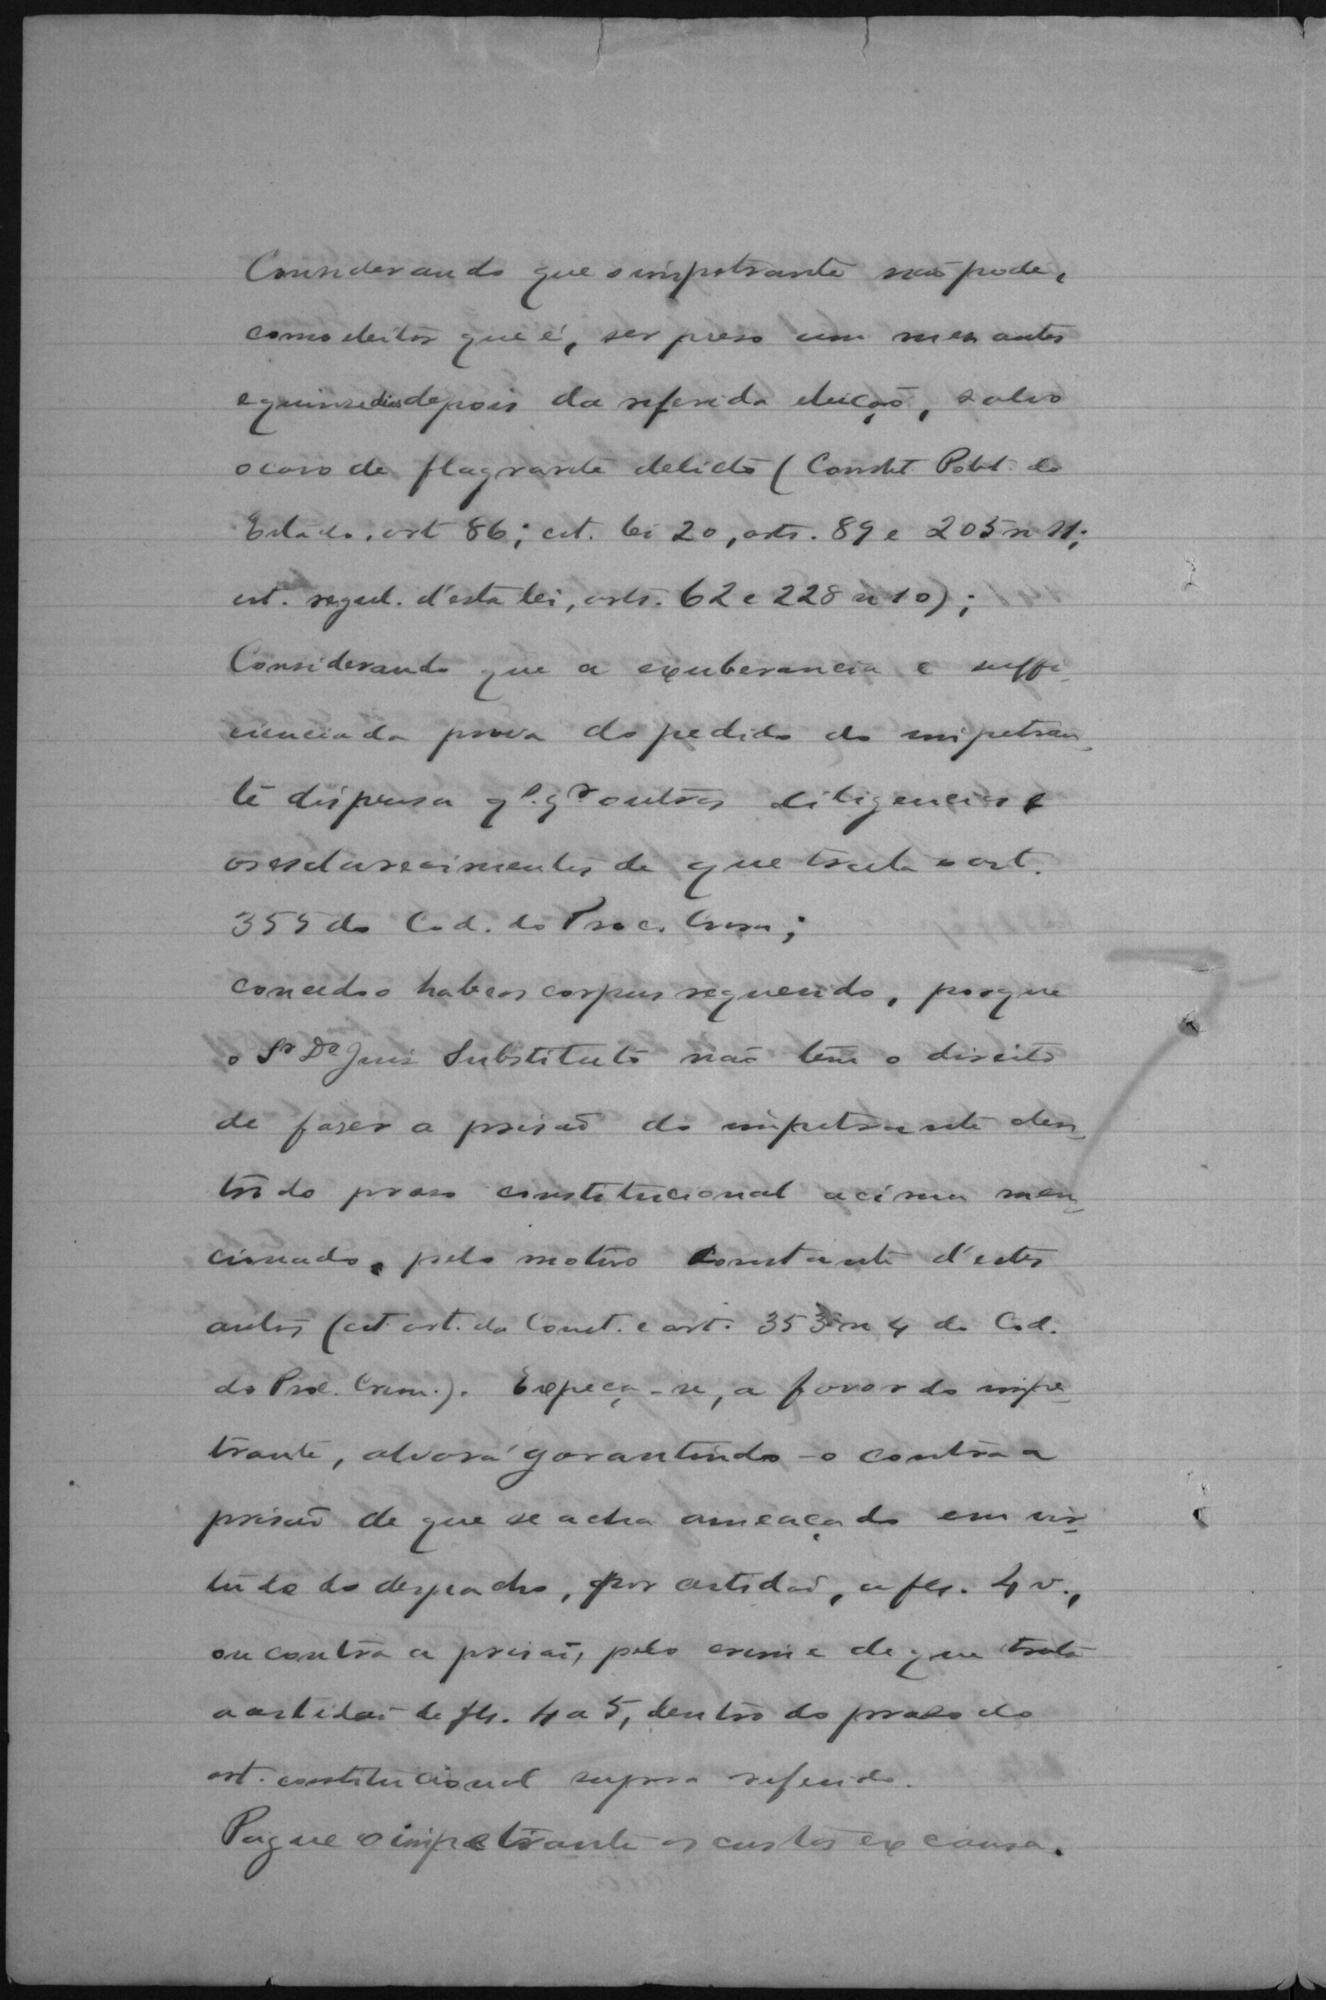 Considerando que o impetrante não pode,
como eleitor que é, ser preso um mez antes
e quinze dias depois da referida eleição, salvo
o caso de flagrante delicto (Constit. Polit. do
Estado, art 86; cit. lei 20, arts. 89 e 205 n 11;
cit. regul. d'esta lei, arts. 62 e 228 n 10);
Considerando que a exuberancia e suffi-
ciencia da prova do pedido do impetran-
te dispensa qº. qr outras diligencias e
os esclarecimentos de que trata o art.
355 do Cod. do Proc. Crim;
concedo o habeas corpus requerido, porque
o Sr Dr Juiz Substituto não tem o direito
de fazer a prisão do impetrante den-
tro do praso constitucional acima men-
cionado, pelo motivo constante d'estes
autos (cit. art. da Const. e art. 353 n 4 do Cod.
do Proc. Crim.). Expeça-se, a favor do impe-
trante, alvará garantindo-o contra a
prisão de que se acha ameaçado em vir-
tude do despacho, por certidão, a fls. 4 v.,
ou contra a prisão, pelo crime de que trata
a certidão de fls. 4 a 5, dentro do praso do
art. constitucional supra referido.
Pague o impetrante as custas ex causa.
7